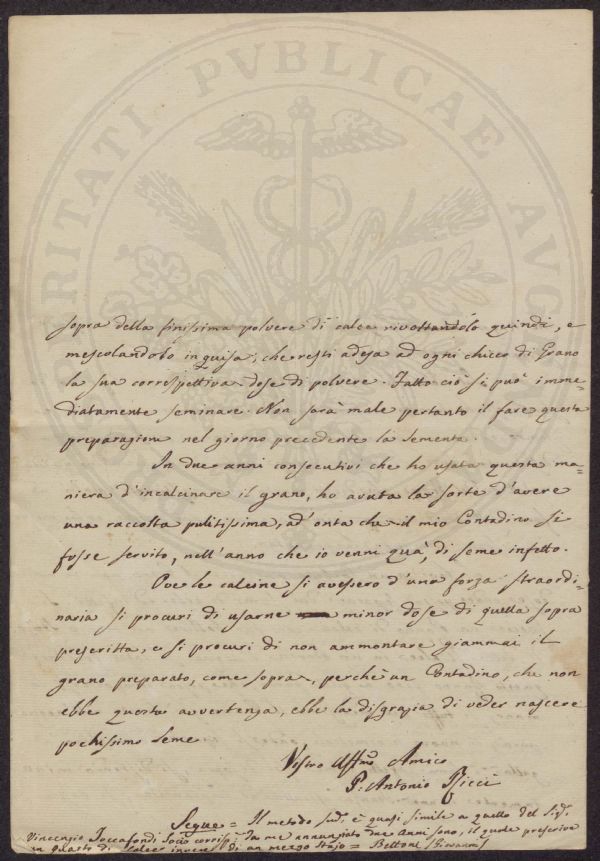 PUBLICAE
sopra della finissima polvere di calce rivoltandolo quindi, e
mescolandolo in guisa, che resti adesa ad ogni chicco di Grano
la sua correspettiva dose di polvere. Fatto ciò si può imme=
diatamente seminare. Non sarà male pertanto il fare questa
preparazione nel giorno precedente la sementa.
In due anni consecutivi che ho usata questa ma=
niera d'incalcinare il grano, ho avuta la sorte d'avere
una raccolta pulitissima, ad'onta che il mio Contadino si
fosse servito, nell'anno che io venni quà, di seme infetto.
Ove le calcine si avessero d'una forza straordi=
naria si procuri di usarne minor dose di quella sopra
prescritta, e si procuri di non ammontare giammai il
grano preparato, come sopra, perchè un Contadino, che non
ebbe questa avvertenza, ebbe la disgrazia di veder nascere
pochissimo seme
Vostro Affmo Amico
P. Antonio Ricci
Segue = Il metodo sudo. è quasi simile a quello del Sigr.
Vincenzio Toccafondi Socio corrisp. da me annunziato due anni sono, il quale prescrive
un quarto di Calce di un mezzo Stajo = Bettoni Giovanni